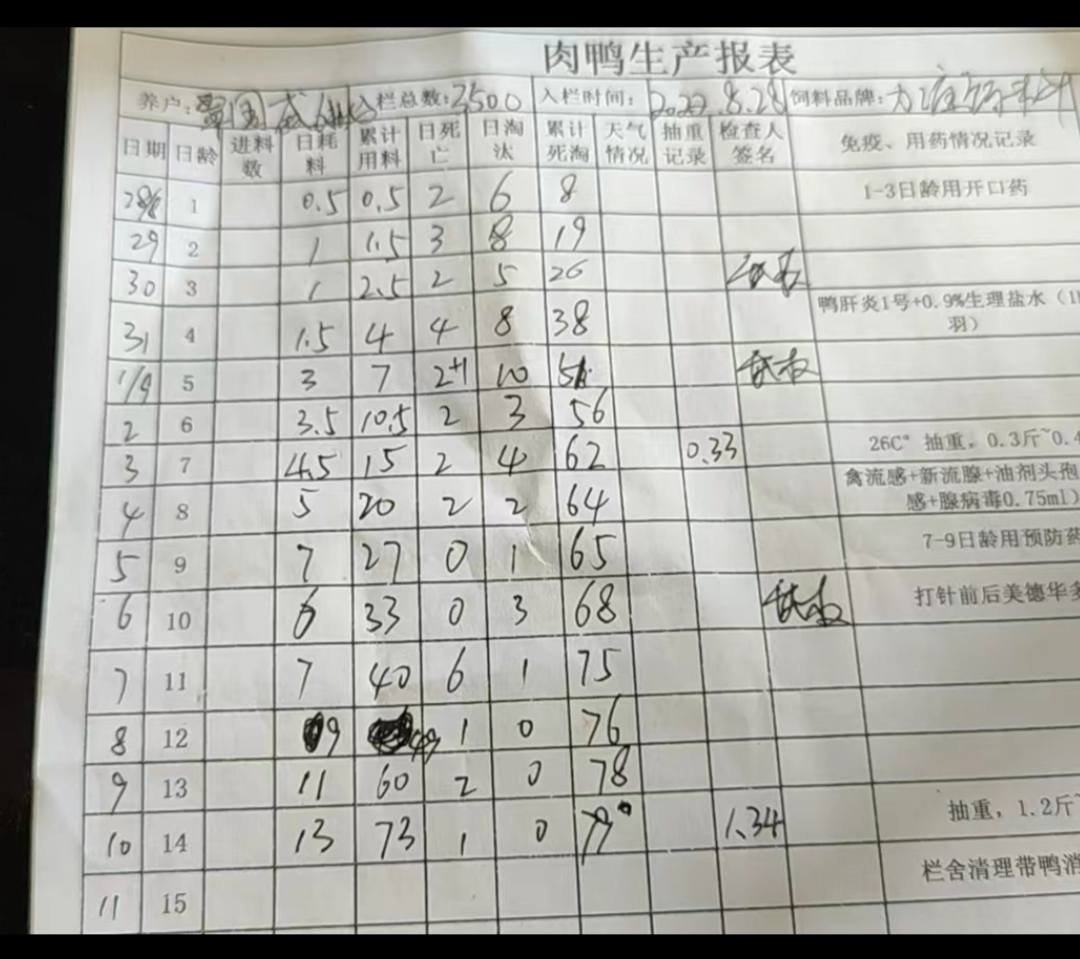 肉鸭生产报表
养户: 国 入栏总数:3500 入栏时间: 2022.8.28 饲料品牌:
日期 日龄 进料数 日耗料 累计用料 日死亡 日淘汰 累计死淘 天气情况 抽重记录 检查人签名 免疫、用药情况记录
28/8 1 0.5 0.5 2 6 8 1-3日龄用开口药
29 2 1 1.5 3 8 19
30 3 1 2.5 2 5 26
鸭肝炎1号+0.9%生理盐水（1
31 4 1.5 4 4 8 38 羽）
1/9 5 3 7 2+1 10 51
2 6 3.5 10.5 2 3 56
3 7 4.5 15 2 4 62 0.33 26C° 抽重，0.3斤~0.4
禽流感+新流腺+油剂头孢
4 8 5 20 2 2 64 感+腺病毒0.75ml）
5 9 7 27 0 1 65 7-9日龄用预防药
6 10 6 33 0 3 68 打针前后美德华多
7 11 7 40 6 1 75
8 12 9 49 1 0 76
9 13 11 60 2 0 78
10 14 13 73 1 0 79 1.34 抽重，1.2斤~
11 15 栏舍清理带鸭消